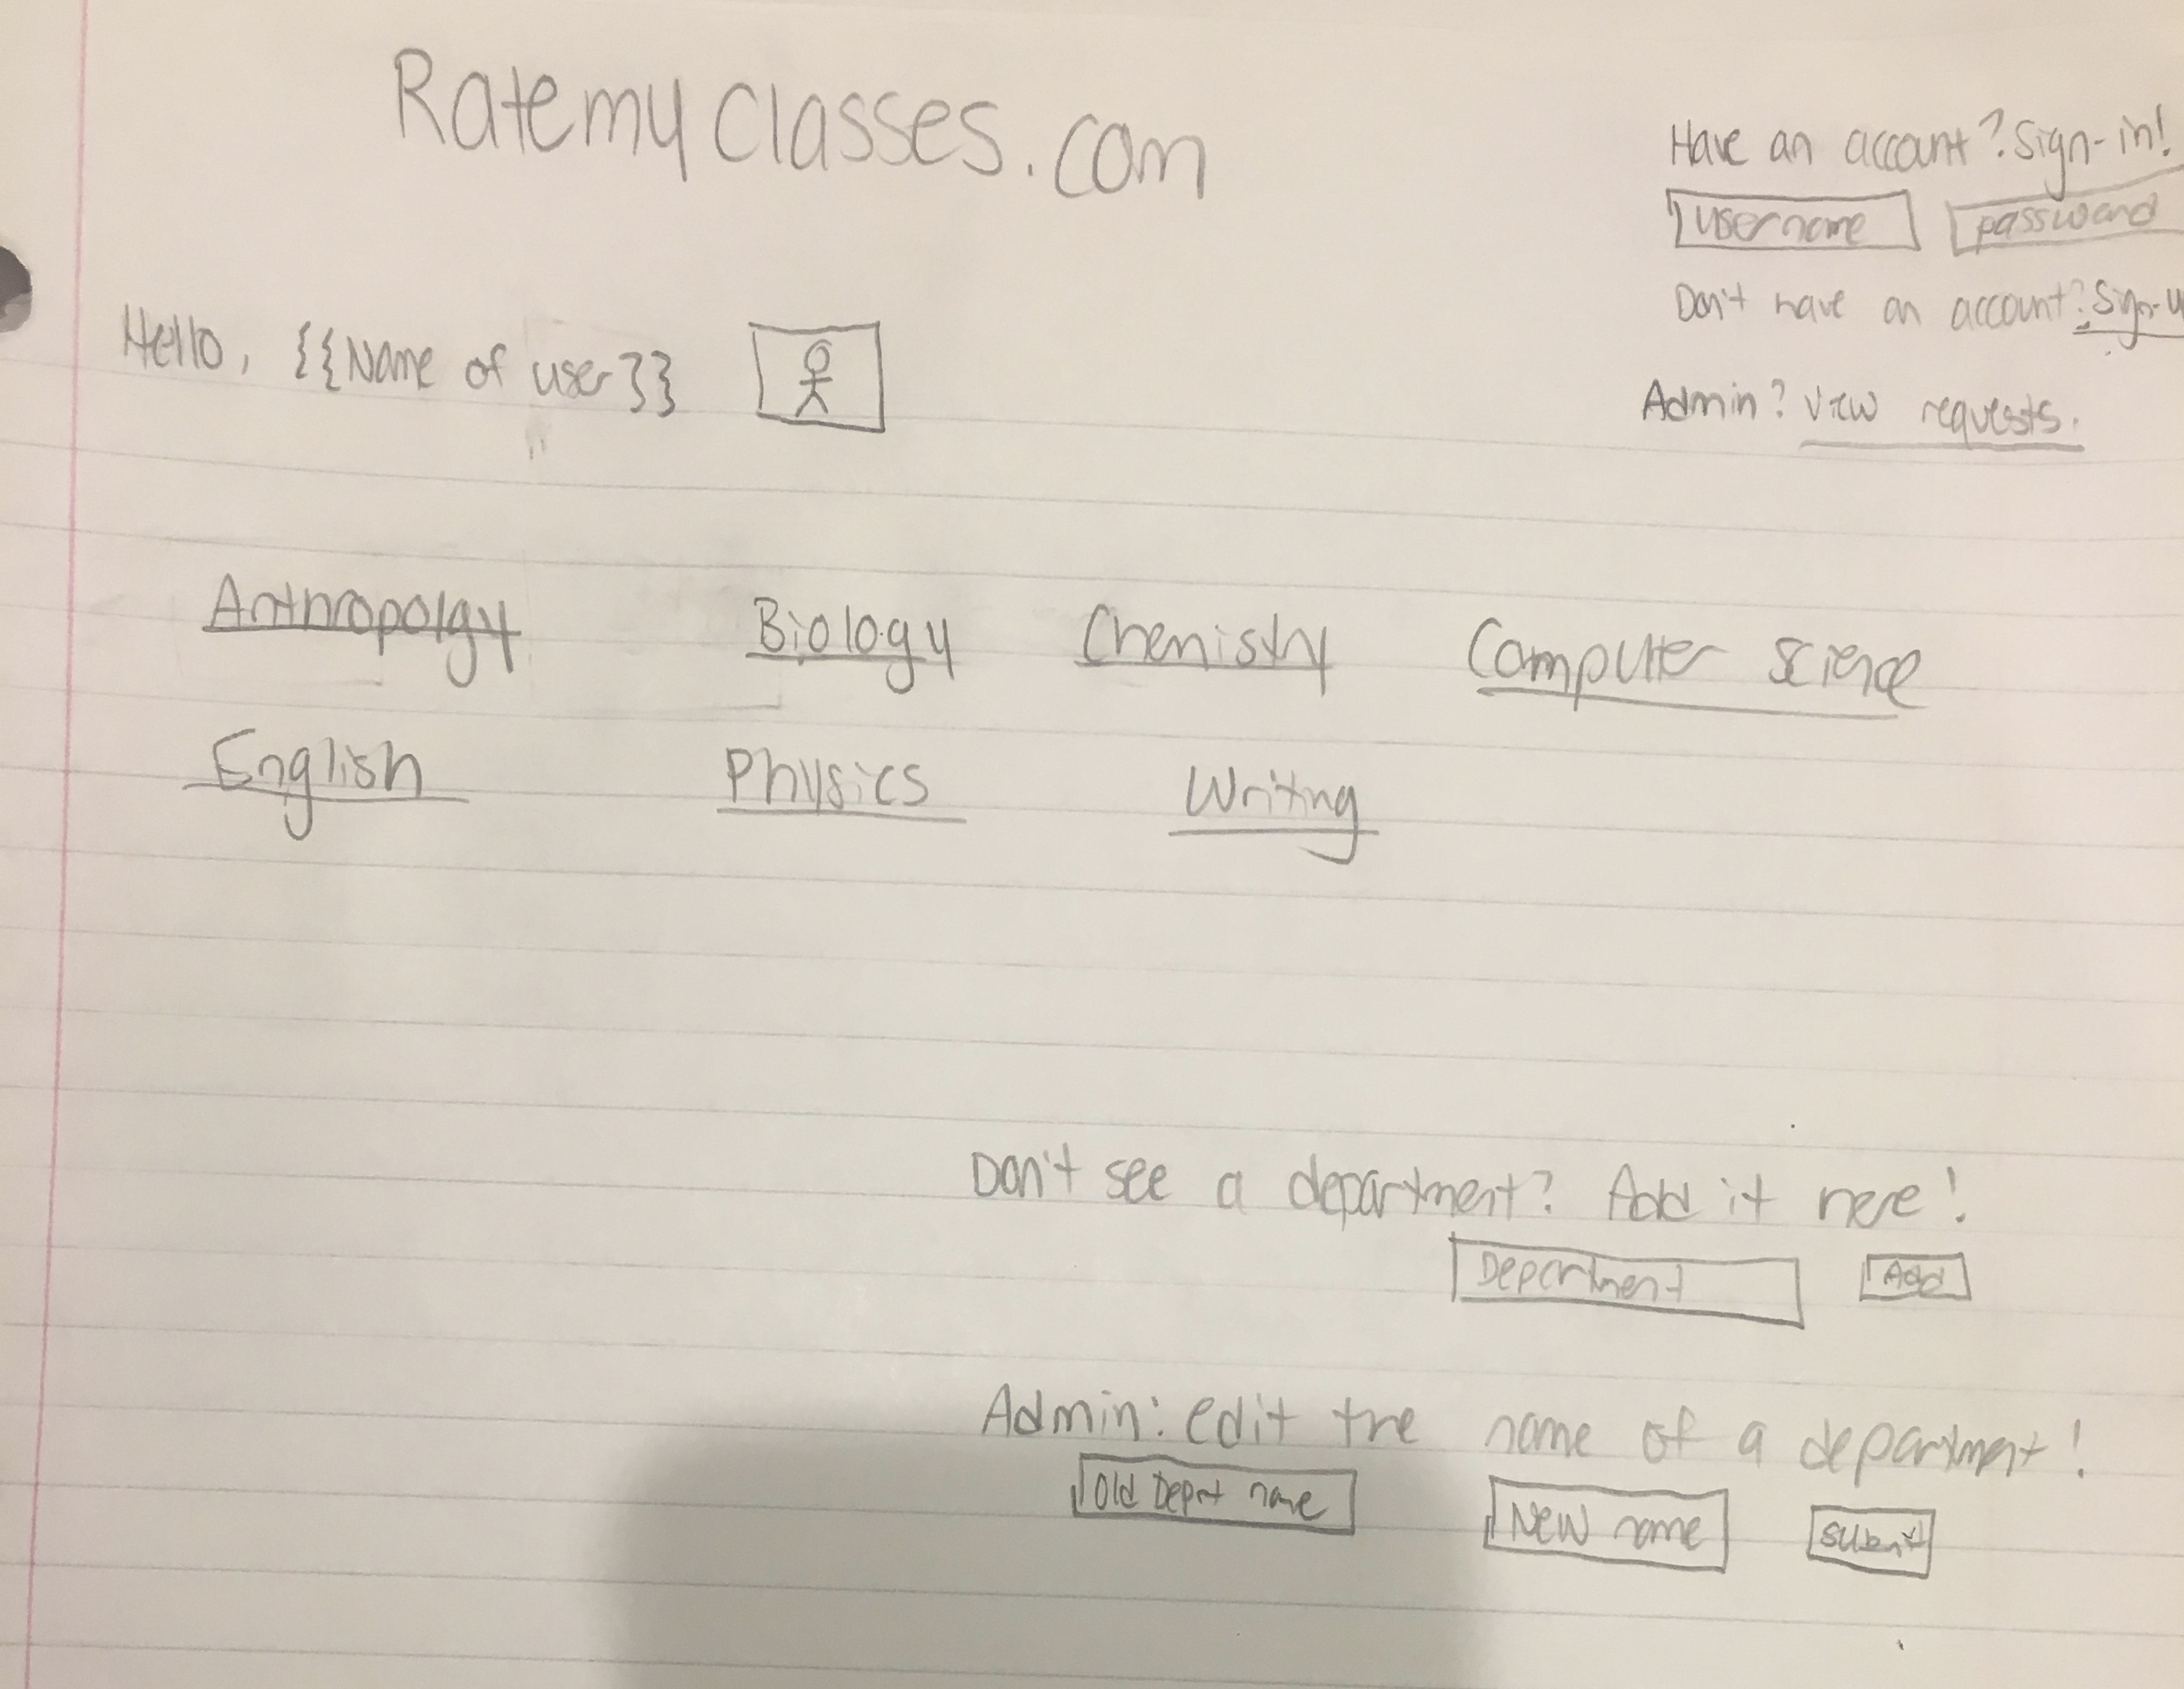 Ratemyclasses.com
Have an account? Sign-in!
username password
Don't have an account? Sign-u
Hello, {{Name of user}}
Admin? view requests.
Anthropolgy Biology Chemistry Computer science
English Physics Writing
Don't see a department? Add it here!
Department Add
Admin: edit the name of a department!
Old Deprt name New name submit